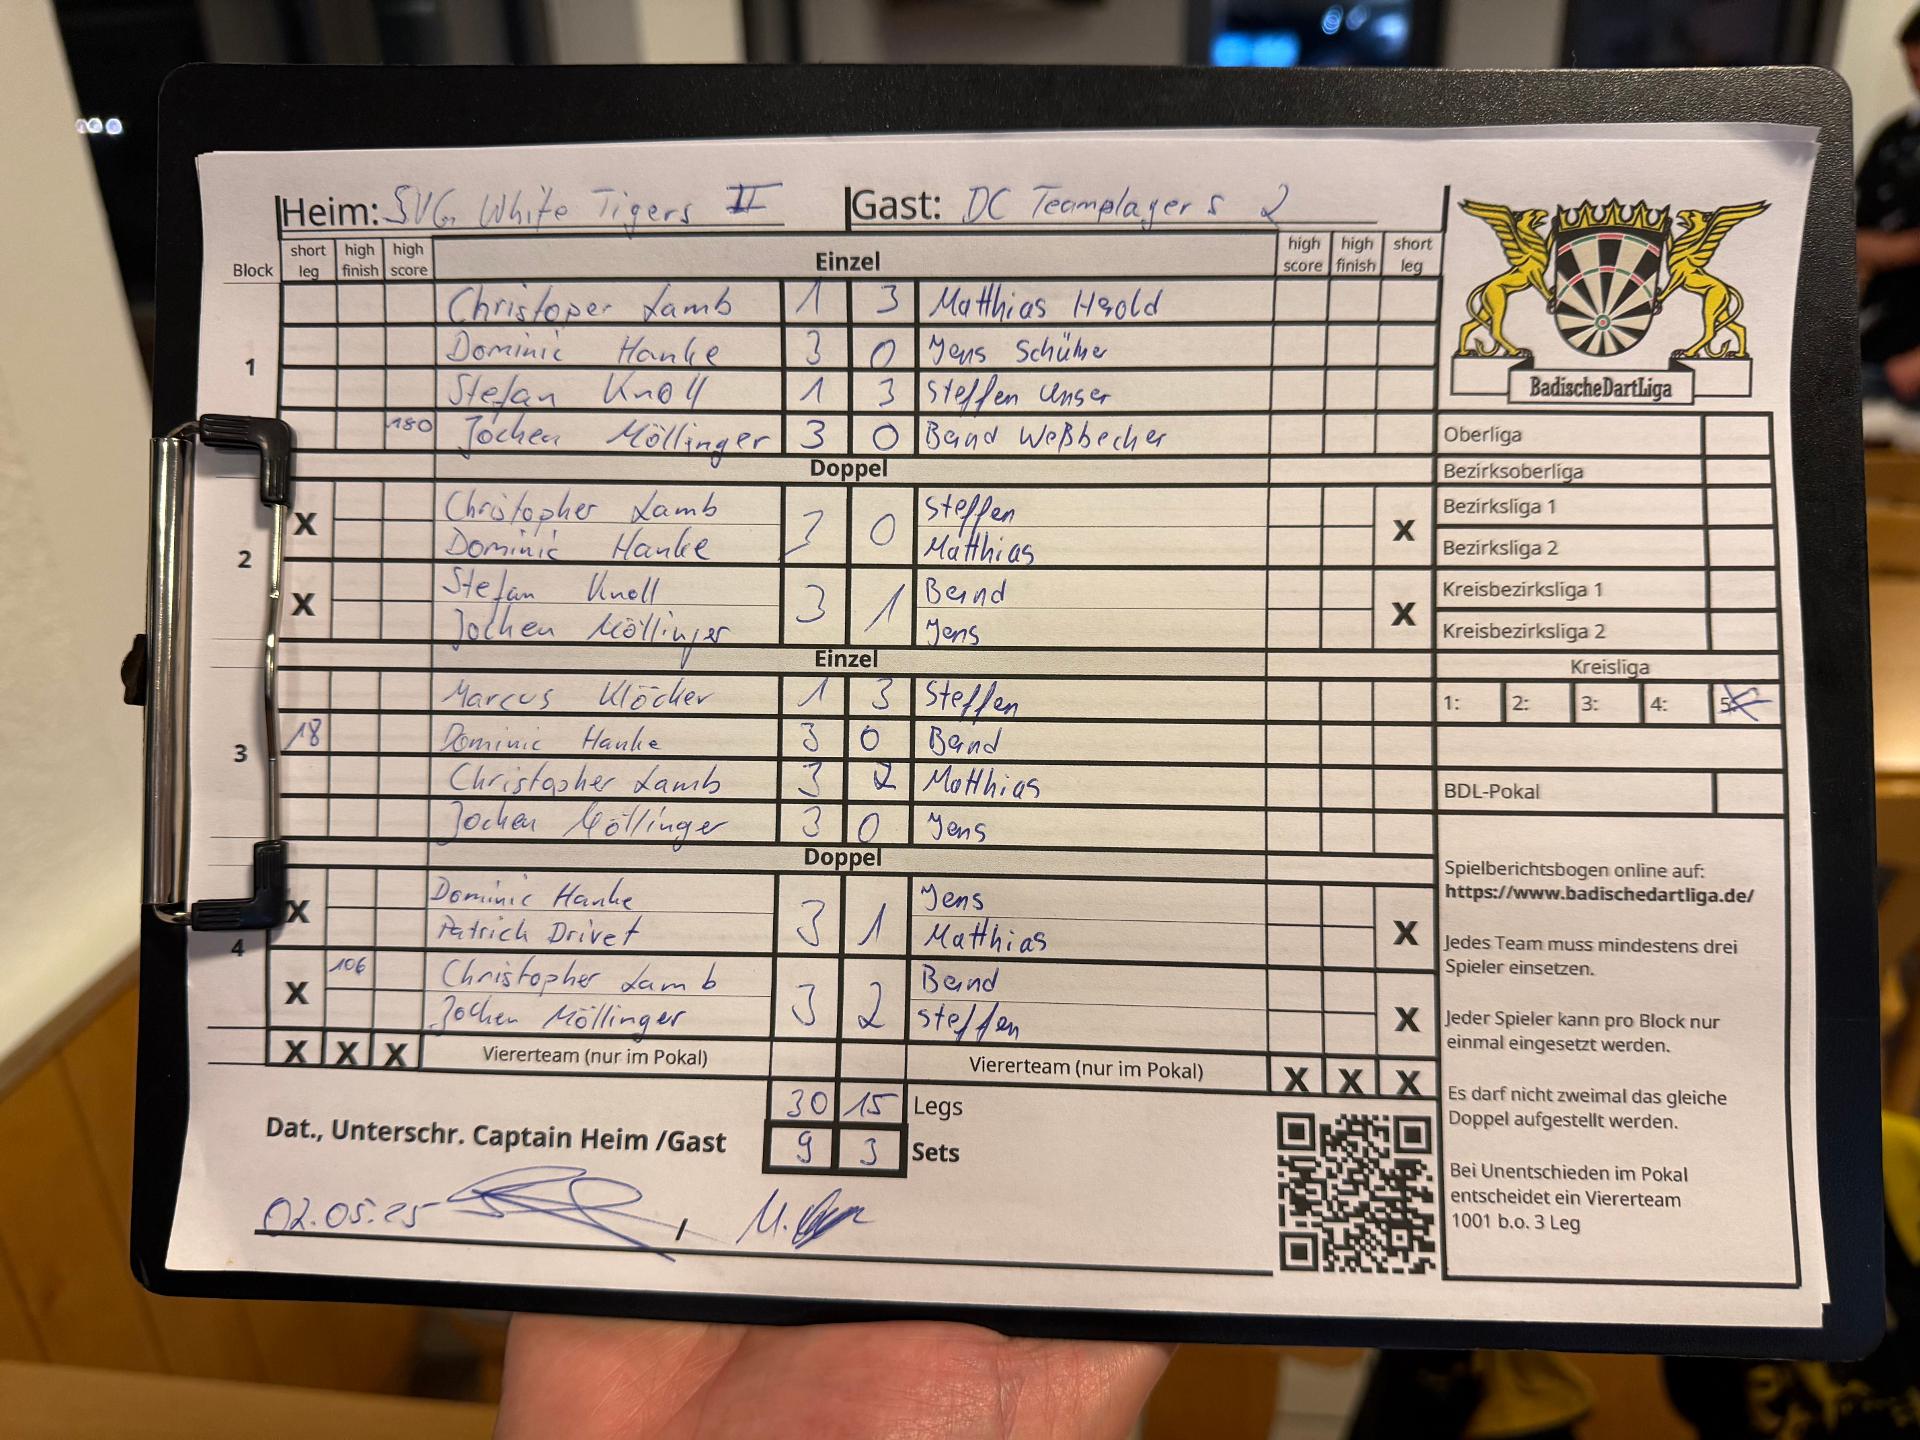 Heim: SVG White Tigers II Gast: DC Teamplayers 2
Block short leg high finish high score Einzel high score high finish short leg
1
Christoper Lamb 1 3 Matthias Herold
Dominic Hanke 3 0 Jens
Stefan Knoll 1 3 Steffen Unser
180 Jochen Möllinger 3 0 Bernd Weßbecher
Doppel
2
X Christopher Lamb 3 0 Steffen X
Dominic Hanke Matthias
X Stefan Knoll 3 1 Bernd X
Jochen Möllinger Jens
Einzel
3
Marcus Klöcker 1 3 Steffen
18 Dominic Hanke 3 0 Bernd
Christopher Lamb 3 2 Matthias
Jochen Möllinger 3 0 Jens
Doppel
4
X Dominic Hanke 3 1 Jens X
Patrick Drivet Matthias
X 106 Christopher Lamb 3 2 Bernd X
Jochen Möllinger Steffen
X X X Viererteam (nur im Pokal) Viererteam (nur im Pokal) X X X
30 15 Legs
Dat., Unterschr. Captain Heim /Gast 9 3 Sets
02.05.25 / M.
BadischeDartLiga
Oberliga
Bezirksoberliga
Bezirksliga 1
Bezirksliga 2
Kreisbezirksliga 1
Kreisbezirksliga 2
Kreisliga
1: 2: 3: 4: 5: X
BDL-Pokal
Spielberichtsbogen online auf:
https://www.badischedartliga.de/
Jedes Team muss mindestens drei
Spieler einsetzen.
Jeder Spieler kann pro Block nur
einmal eingesetzt werden.
Es darf nicht zweimal das gleiche
Doppel aufgestellt werden.
Bei Unentschieden im Pokal
entscheidet ein Viererteam
1001 b.o. 3 Leg